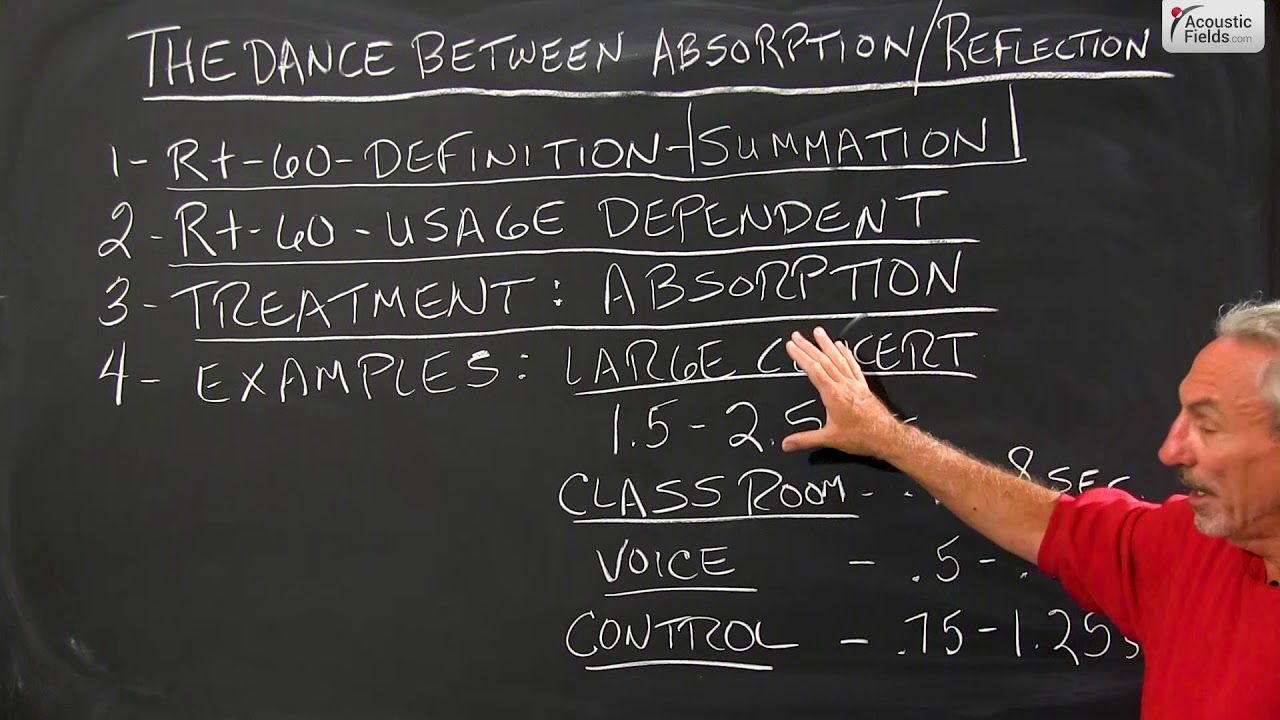 THE DANCE BETWEEN ABSORPTION/REFLECTION
Acoustic
Fields.com
1 - Rt-60-DEFINITION-|SUMMATION|
2 - Rt-60 - USAGE DEPENDENT
3 - TREATMENT: ABSORPTION
4 - EXAMPLES: LARGE
1.5 - 2.5
CLASS ROOM - 8 SEC.
VOICE - .5 -
CONTROL - .75 - 1.25 s